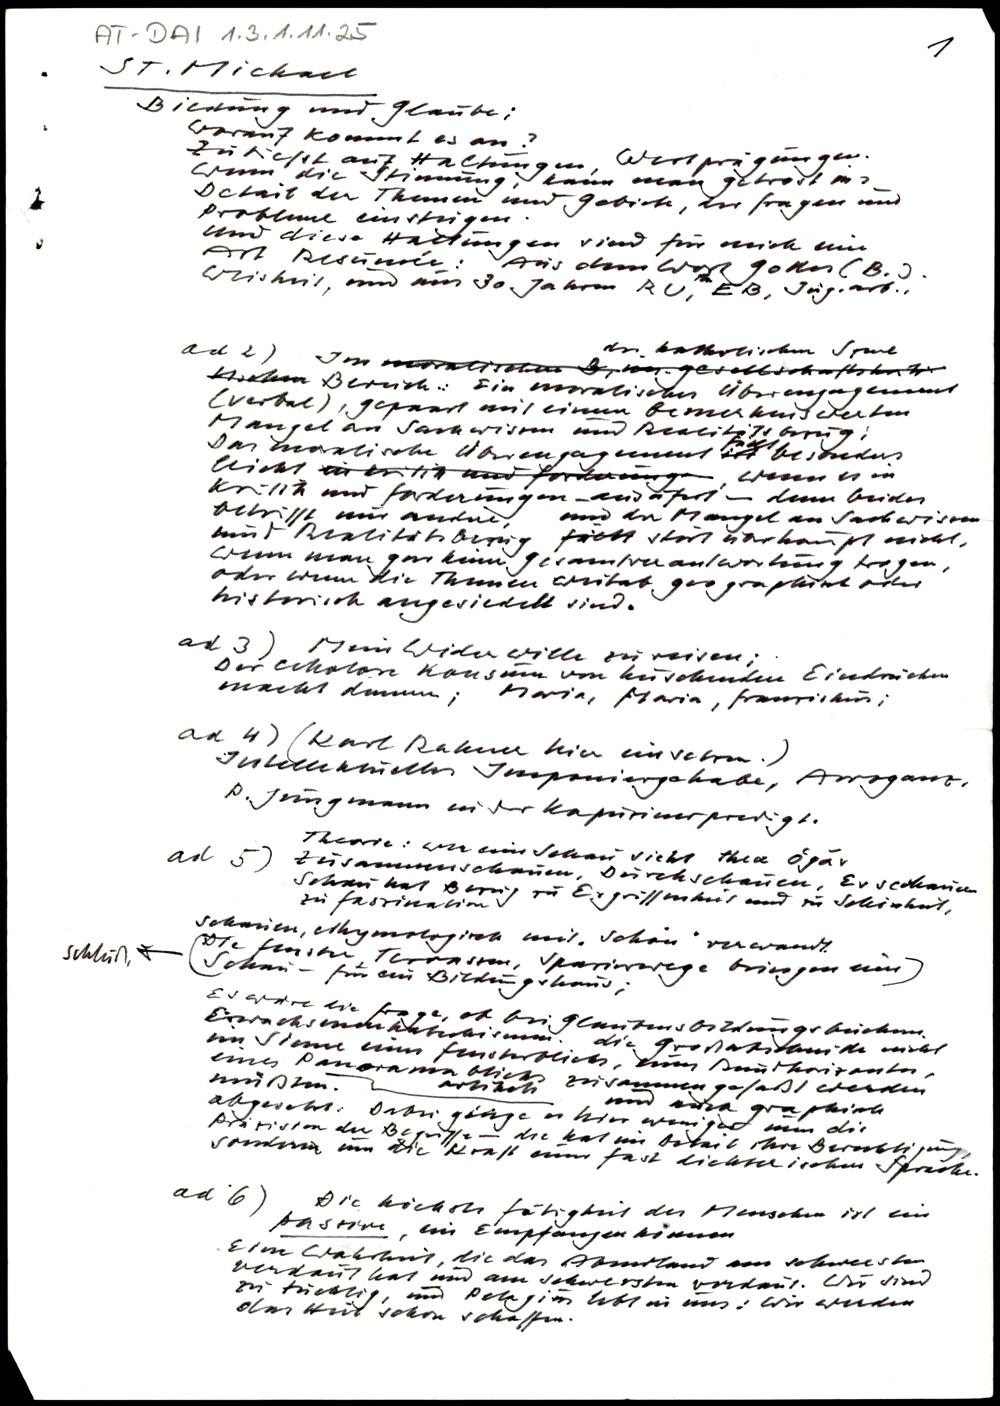 AT-DAI 1.3.1.11.25
1
St. Michael
Bildung und Glaube;
Worauf kommt es an?
Zutiefst auf Haltungen, Wertprägungen.
Wenn die Stimmung, kann man getrost ins
Detail der Themen und Gebiete, der Fragen und
Probleme einsteigen.
Und diese Haltungen sind für mich eine
Art Resümée: Aus dem Wort Gottes (B.).
Weisheit, und aus 30 Jahren RU, EB, Jug.arb..
ad 2) Im moralischen der katholischen
Bereich: Ein moralisches Überengagement
(verbal), gepaart mit einem bemerkenswerten
Mangel an Sachwissen und Realitätsbezug;
Das moralische Überengagement fällt besonders
leicht in Kritik und Forderungen, wenn es in
Kritik und Forderungen ausufert – denn beides
betrifft nur andre, und der Mangel an Sachwissen
und Realitätsbezug fällt stört überhaupt nicht,
wenn man gar keine Gesamtverantwortung tragen,
oder wenn die Themen weitab geographisch oder
historisch angesiedelt sind.
ad 3) Mein Widerwille zu reisen;
Der Konsum von huschenden Eindrücken
macht dumm; Maria, Maria, Franziskus;
ad 4) (Karl Rahner hier einsetzen.)
Intellektuelles Imponiergehabe, Arroganz.
P. Jungmann in der Kapuzinerpredigt.
ad 5) Theorie: wie ein Schau sicht thea
Zusammenschauen, Durchschauen, Erschauen
Schau hat Bezug zu Ergriffenheit und zu Schönheit,
zu Faszination
schauen, ethymologisch mit "schön" verwandt.
Schluß, ← (Die Fenster, Terrassen, Spazierwege bringen eine)
Schau – für ein Bildungshaus;
Es wäre die Frage, ob bei Glaubensbildungsbüchern
Erwachsenenkatechismen die Großabschnitte nicht
im Sinne eines Fensterblicks, eines Rundhorizontes,
eines Panoramablicks zusammengefaßt werden
müßten. artistisch und auch graphisch
abgesetzt. Dabei ginge es hier weniger um die
Präzision der Begriffe – die hat im Detail ihre Berechtigung,
sondern um die Kraft einer fast dichterischen Sprache.
ad 6) Die höchste Fähigkeit des Menschen ist eine
passive, ein Empfangenkönnen
Eine Wahrheit, die das Abendland am schwersten
verdaut hat und am schwersten verdaut. Wir sind
zu tüchtig, und Pelagius lebt in uns: Wir werden
das Heil schon schaffen.